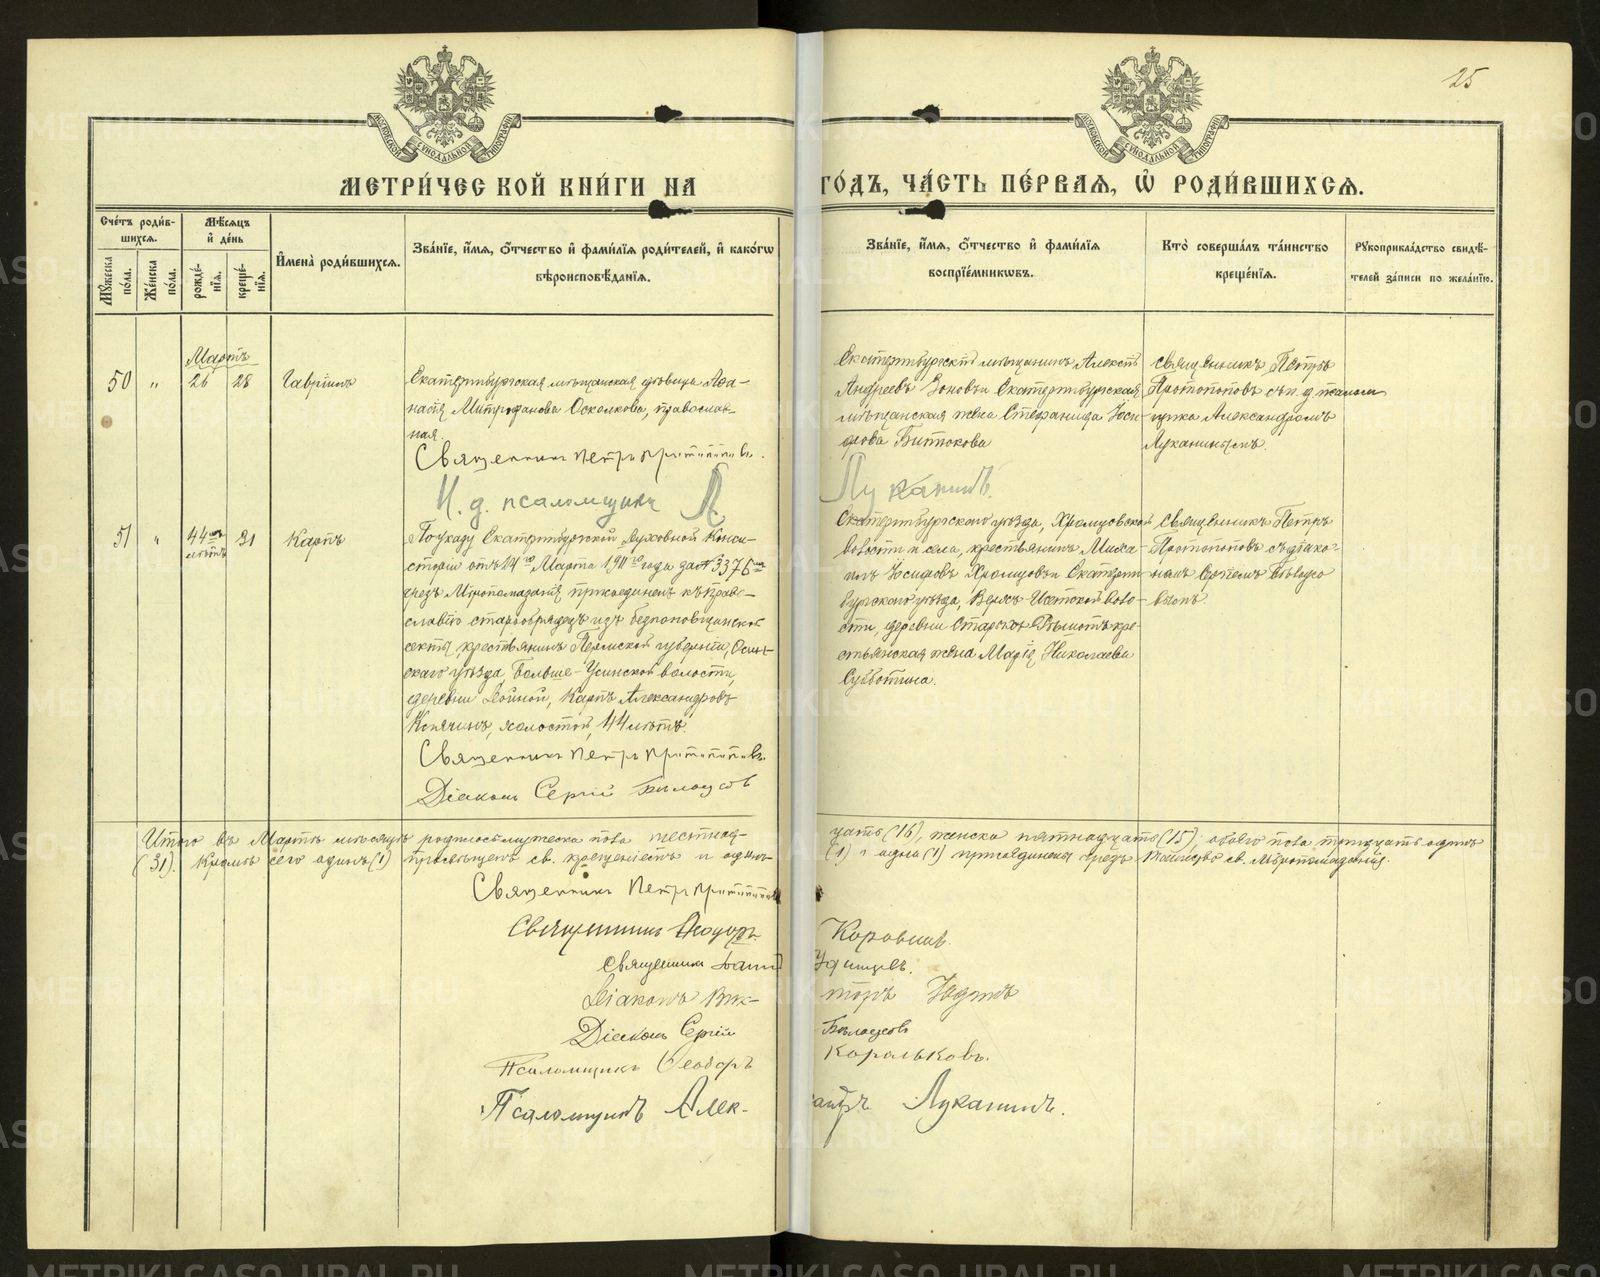 25
МОСКОВСКОЙ СѴНОДАЛЬНОЙ ТИПОГРАФІИ
МОСКОВСКОЙ СѴНОДАЛЬНОЙ ТИПОГРАФІИ
МЕТРИ́ЧЕСКОЙ КНИ́ГИ НА ГО́ДЪ, ЧА́СТЬ ПЕ́РВАЯ, Ѡ РОДИ́ВШИХСЯ.
Сче́тъ роди́в-
шихся.
Мꙋ́жеска по́ла.
Же́нска по́ла.
Мѣ́сяцъ
и҆ де́нь
рожде́-
нія.
креще́-
нія.
И҆мена̀ роди́вшихся.
Зва́нїе, и҆́мя, ѻ҆́тчество и҆ фами́лїя роди́телей, и҆ како́гѡ
вѣроисповѣ́данїя.
Зва́нїе, и҆́мя, ѻ҆́тчество и҆ фами́лїя
воспрїе́мникѡвъ.
Кто̀ соверша́лъ та́инство
креще́нїя.
Рꙋкоприкла́дство свидѣ́-
телей за́писи по жела́нїю.
Мартъ
50 " 26 28 Гавріилъ
Екатеринбургская мѣщанская дѣвица Аѳа-
насія Митрофанова Осколкова, православ-
ная.
Священникъ Петръ Протопоповъ.
И. д. псаломщика А. Луканинъ.
Екатеринбургскій мѣщанинъ Алексѣй
Андреевъ Зоновъ и Екатеринбургская
мѣщанская жена Стефанида Іоси-
фова Битюкова
Священникъ Петръ
Протопоповъ съ и. д. псалом-
щика Александромъ
Луканинымъ.
51 " 44хъ лѣтъ 31 Карпъ
По указу Екатеринбургской Духовной Конси-
сторіи отъ 24го Марта 1911го года за № 3375мъ
чрезъ Мѵропомазаніе присоединенъ къ право-
славію старообрядецъ изъ безпоповщинской
секты, крестьянинъ Пермской губерніи, Осин-
скаго уѣзда, Больше-Усинской волости,
деревни Войной, Карпъ Александровъ
холостой, 44 лѣтъ.
Священникъ Петръ Протопоповъ.
Діаконъ Сергій Бѣлоусовъ
Екатеринбургскаго уѣзда, Хромцовской
волости и села, крестьянинъ Миха-
илъ Іосифовъ Хромцовъ и Екатерин-
бургскаго уѣзда, Верхъ-Исетской воло-
сти, деревни Старыхъ Рѣшотъ кре-
стьянская жена Марія Николаева
Субботина.
Священникъ Петръ
Протопоповъ съ діако-
номъ Сергіемъ Бѣлоусо-
вымъ.
Итого въ Мартѣ мѣсяцѣ родилось мужеска пола шестнад-цать (16), женска пятнадцать (15); обоего пола тридцать одинъ
(31). Кромѣ сего одинъ (1) просвѣщенъ св. крещеніемъ и одинъ (1) и одна (1) присоединены чрезъ таинство св. Мѵропомазанія.
Священникъ Петръ Протопоповъ
Священникъ Ѳеодоръ Коровинъ.
Священникъ
Діаконъ Викторъ Юдинъ
Діаконъ Сергій Бѣлоусовъ
Псаломщикъ Ѳеодоръ Корольковъ.
Псаломщикъ Александръ Луканинъ.
METRIKI.GASO-URAL.RU